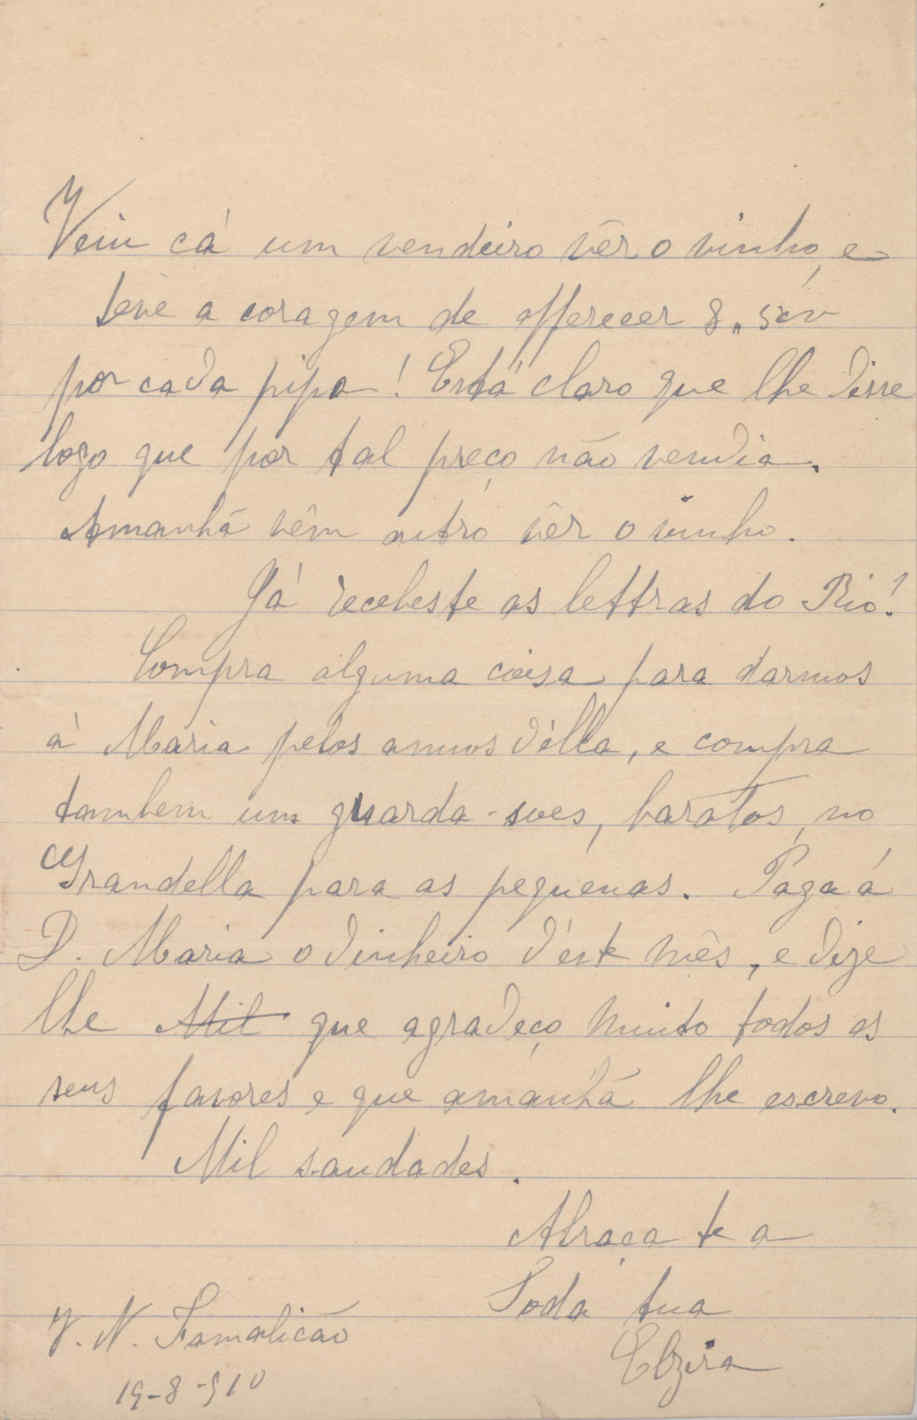 Veiu cá um vendeiro vêr o vinho, e
teve a coragem de offerecer 8
por cada pipa! Está claro que lhe disse
logo que por tal preço não vendia.
Amanhã vêm outro vêr o vinho.
Já recebeste as lettras do Rio?
Compra alguma coisa para darmos
á Maria pelos annos d'ella, e compra
tambem uns guarda-soes, baratos, no
Grandella para as pequenas. Paga á
D. Maria o dinheiro d'éste mês, e dize
lhe Mil que agradeço muito todos os
seus favores e que amanhã lhe escrevo.
Mil saudades.
Abraça te a
Toda tua
Elzira
V. N. Famalicão
19-8-910